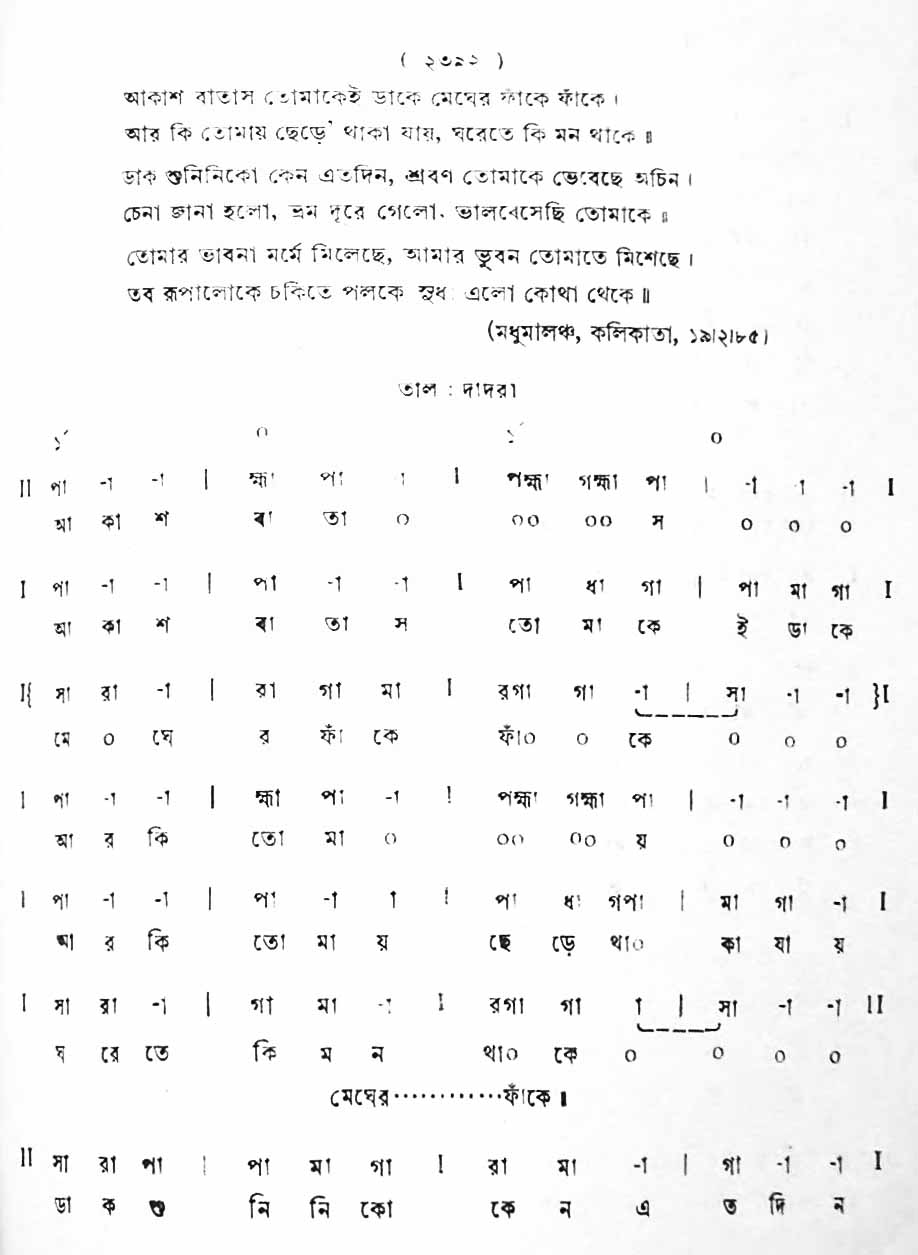 ( ২৩৯২ )
আকাশ বাতাস তোমাকেই ডাকে মেঘের ফাঁকে ফাঁকে ।
আর কি তোমায় ছেড়ে থাকা যায়, ঘরেতে কি মন থাকে ॥
ডাক শুনিনিকো কেন এতদিন, শ্রবণ তোমাকে ভেবেছে অচিন ।
চেনা জানা হলো, ভ্রম দূরে গেলো, ভালবেসেছি তোমাকে ॥
তোমার ভাবনা মর্মে মিলেছে, আমার ভুবন তোমাতে মিশেছে ।
তব রূপালোকে চকিতে পলকে সুধা এলো কোথা থেকে ॥
(মধুমালঞ্চ, কলিকাতা, ১৯।২।৮৫)
তাল : দাদরা
১´ ০ ১´ ০
II পা -া -া | হ্মা পা া I পহ্মা গহ্মা পা | -া া -া I
আ কা শ বা তা ০ ০০ ০০ স ০ ০ ০
I পা -া -া | পা -া -া I পা ধা গা | পা মা গা I
আ কা শ বা তা স তো মা কে ই ডা কে
I{ সা রা -া | রা গা মা I রগা গা -া | সা -া -া }I
মে ০ ঘে র ফাঁ কে ফাঁ০ ০ কে ০ ০ ০
I পা -া -া | হ্মা পা -া I পহ্মা গহ্মা পা | -া -া -া I
আ র কি তো মা ০ ০০ ০০ য় ০ ০ ০
I পা -া -া | পা -া া I পা ধা গপা | মা গা -া I
আ র কি তো মা য় ছে ড়ে থা০ কা যা য়
I সা রা -া | গা মা -া I রগা গা া | সা -া -া II
ঘ রে তে কি ম ন থা০ কে ০ ০ ০ ০
মেঘের············ফাঁকে ॥
II সা রা পা | পা মা গা I রা মা -া | গা -া -া I
ডা ক শু নি নি কো কে ন এ ত দি ন